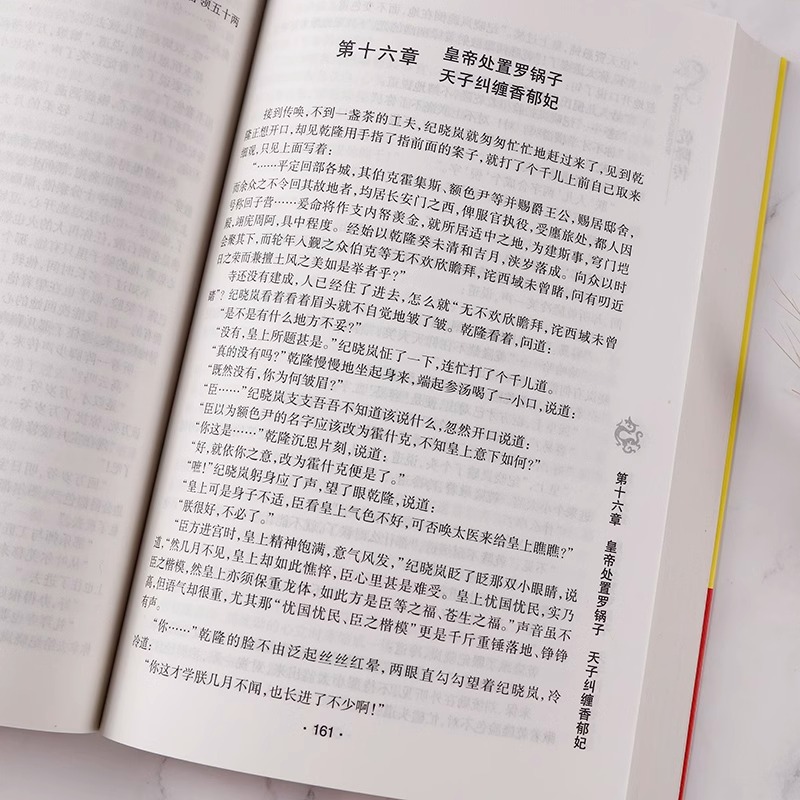 领五十两
第十六章
皇帝处置罗锅子
天子纠缠香郁妃
接到传唤,不到一盏茶的工夫,纪晓岚就匆匆忙忙地赶过来了,见到乾
隆正想开口,却见乾隆用手指了指前面的案子,就打了个千儿上前自己取来
细观,只见上面写着:
“……平定回部各城,其伯克霍集斯、额色尹等并赐爵王公,赐居邸舍,
而余众之不令回其故地者,均居长安门之西,俾服官执役,受廛旅处,都人因
号称回子营……爰命将作支内帑羡金,就所居适中之地,为建斯事,穹门垲
殿,翊庑周阿,具中程度。经始以乾隆癸未清和吉月,浃岁落成。向众以时
会聚其下,而轮年入觐之众伯克等无不欢欣瞻拜,诧西域未曾睹,问有叨近
日之荣而兼擅土风之美如是举者乎?”
寺还没有建成,人已经住了进去,怎么就“无不欢欣瞻拜,诧西域未曾
睹”?纪晓岚看着看着眉头就不自觉地皱了皱。乾隆看着,问道:
“是不是有什么地方不妥?”
“没有,皇上所题甚是。”纪晓岚怔了一下,连忙打了个千儿道。
“真的没有吗?”乾隆慢慢地坐起身来,端起参汤喝了一小口,说道:
“既然没有,你为何皱眉?”
“臣……”纪晓岚支支吾吾不知道该说什么,忽然开口说道:
“臣以为额色尹的名字应该改为霍什克,不知皇上意下如何?”
“你这是……”乾隆沉思片刻,说道:
“好,就依你之意,改为霍什克便是了。”
“嗻!”纪晓岚躬身应了声,望了眼乾隆,说道:
“皇上可是身子不适,臣看皇上气色不好,可否唤太医来给皇上瞧瞧?”
“朕很好,不必了。”
“臣方进宫时,皇上精神饱满,意气风发,”纪晓岚眨了眨那双小眼睛,说
道,“然几月不见,皇上却如此憔悴,臣心里甚是难受。皇上忧国忧民,实乃
臣之楷模,然皇上亦须保重龙体,如此方是臣等之福、苍生之福。”声音虽不
高,但语气却很重,尤其那“忧国忧民、臣之楷模”更是千斤重锤落地、铮铮
有声。
“你……”乾隆的脸不由泛起丝丝红晕,两眼直勾勾望着纪晓岚,冷
冷道:
“你这才学朕几月不闻,也长进了不少啊!”
·161·
第十六章 皇帝处置罗锅子 天子纠缠香郁妃